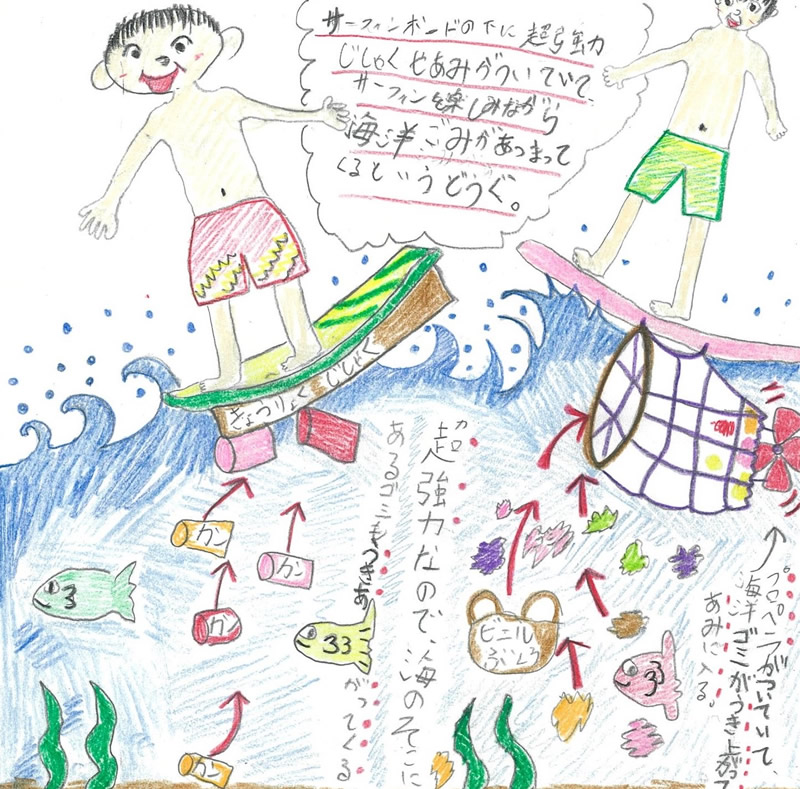 サーフィンボードの下に超強力
じしゃくとあみがついていて、
サーフィンを楽しみながら
海洋ごみがあつまって
くるというどうぐ。
きょうりょくじしゃく
カン
カン
カン
カン
超強力なので、海のそこに
あるゴミも
がってくる
ビニル
ぶくろ
プロペラがついていて、
海洋ゴミがうき上がって
あみに入る。